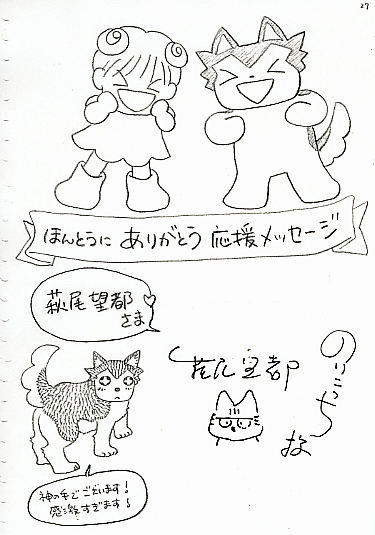 27
ほんとうに ありがとう 応援メッセージ
萩尾望都
さま
萩尾望都
のりこっち
神の手でございます!
感激すぎます!